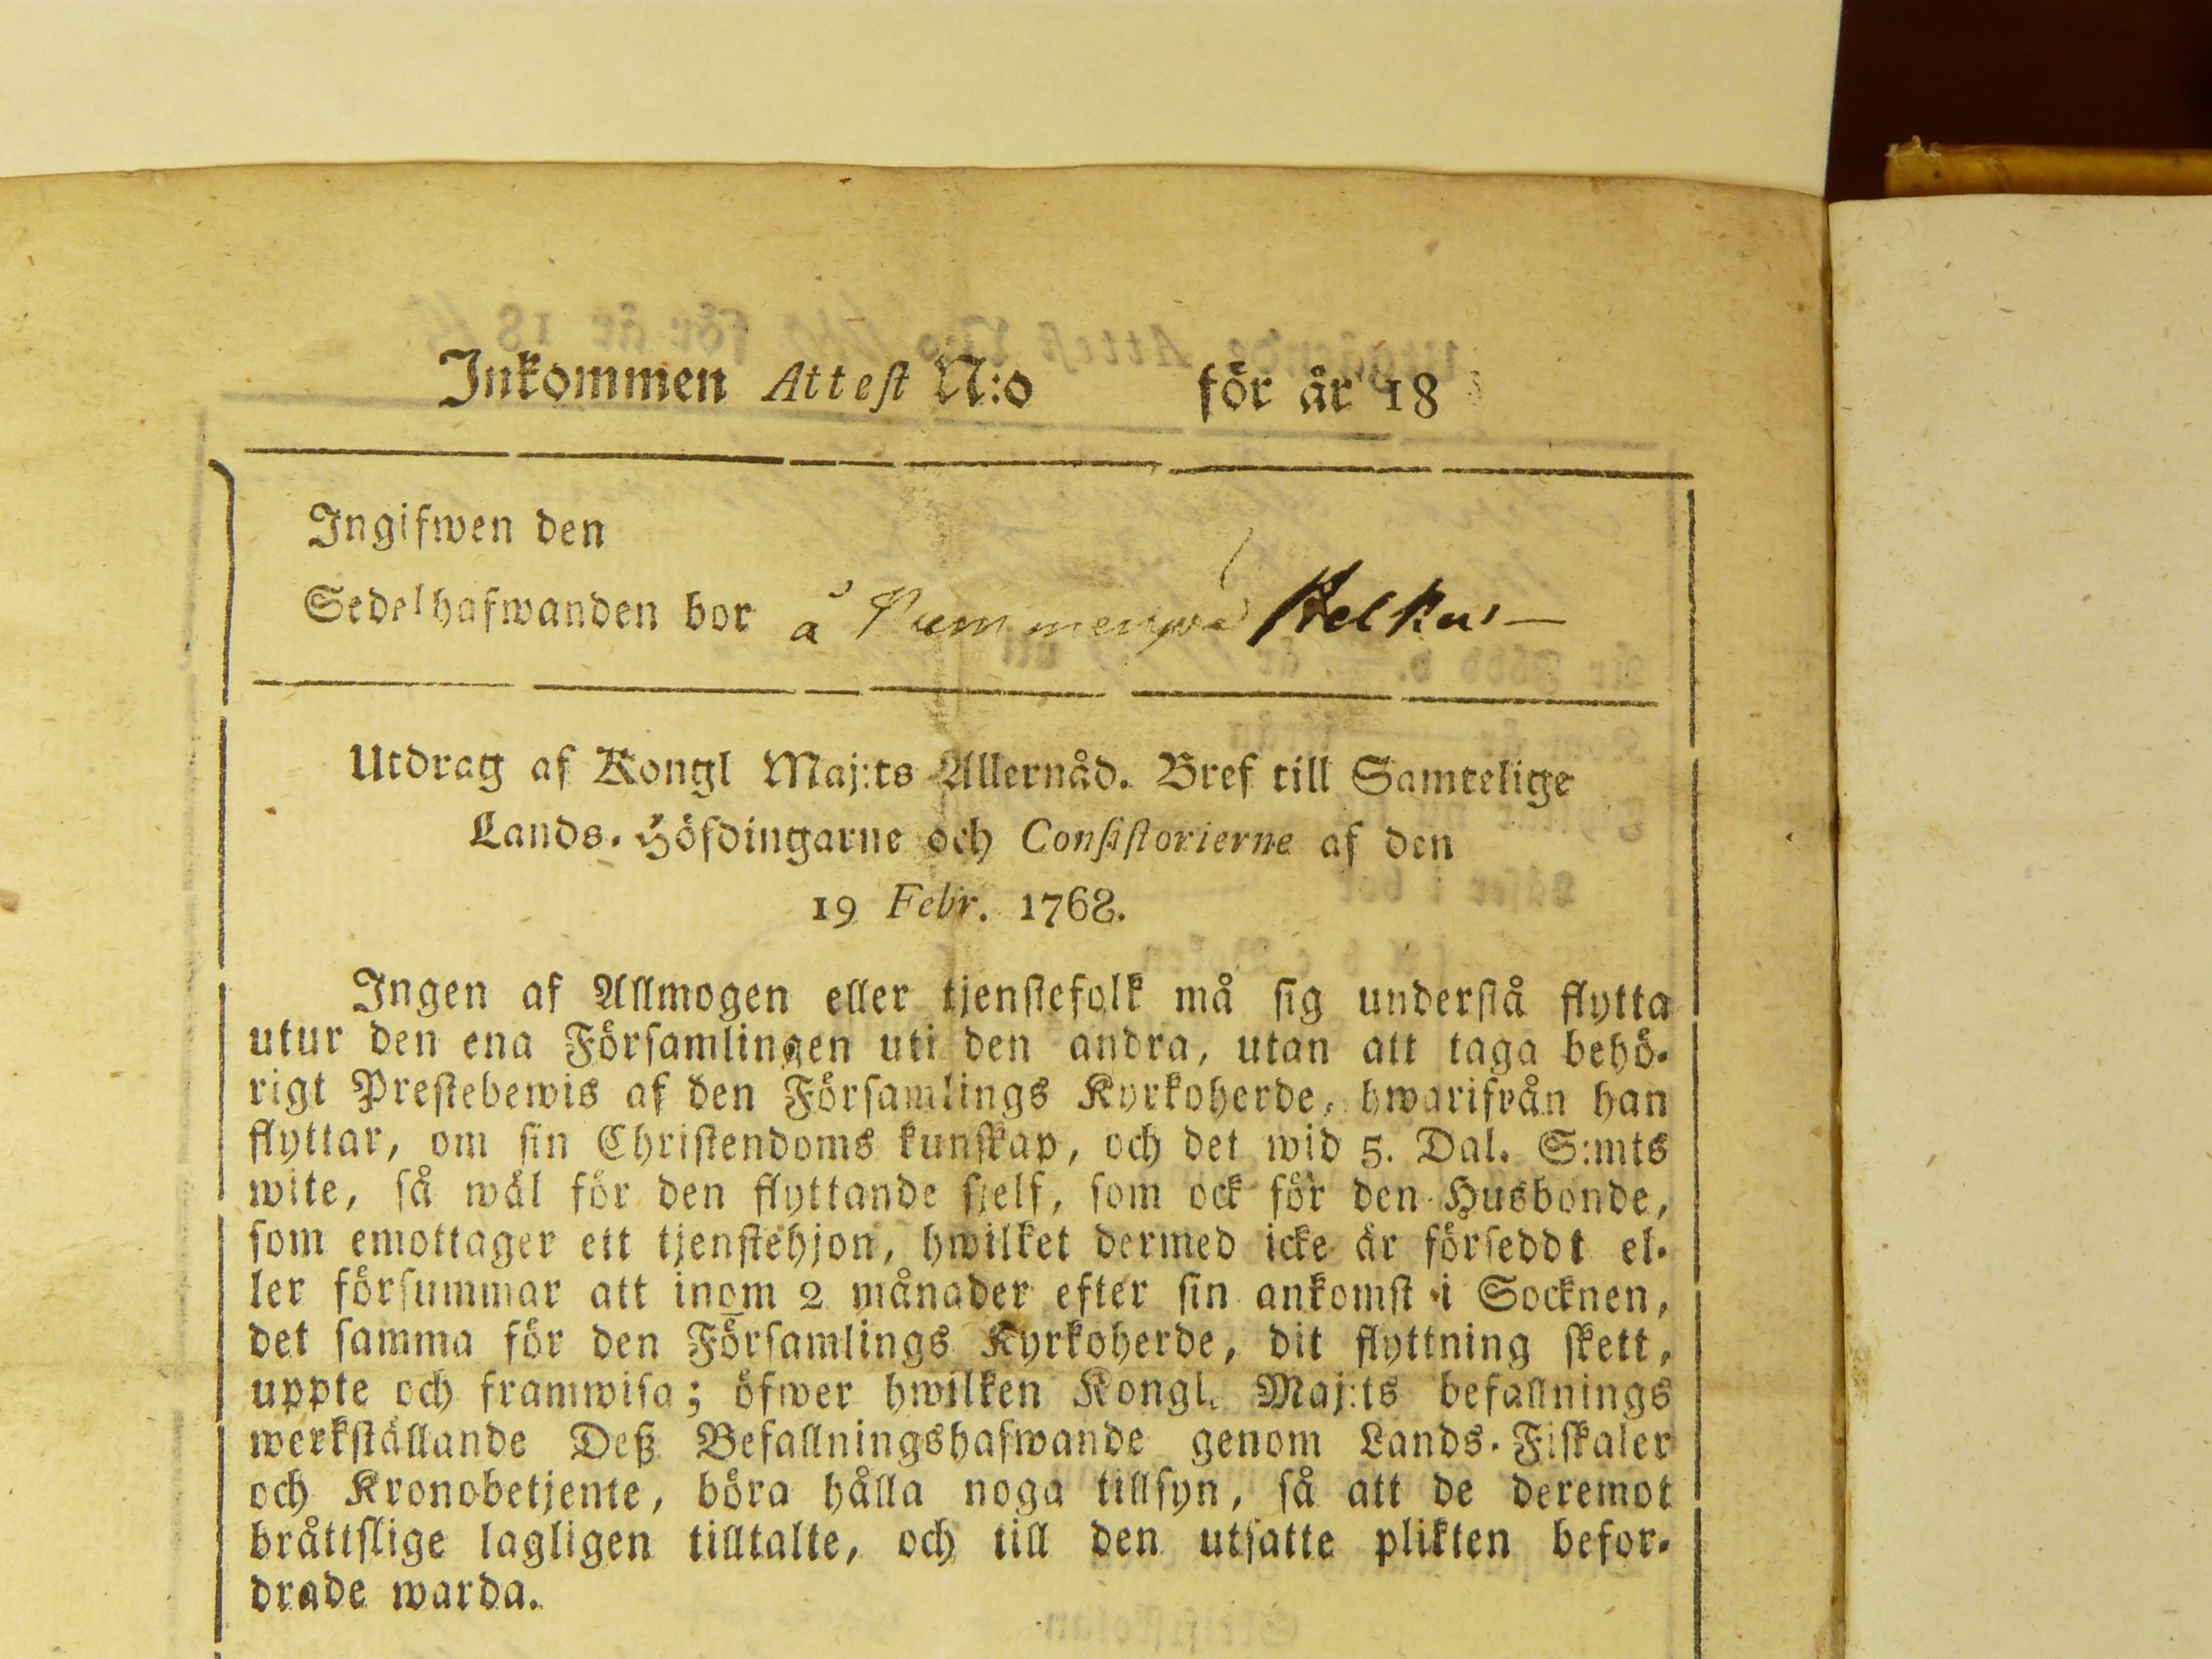 Inkommen Attest N:o för år 18
Ingifwen den
Sedelhafwanden bor å
Utdrag af Kongl Maj:ts Allernåd. Bref till Samtelige
Lands-Höfdingarne och Consistorierne af den
19 Febr. 1768.
Ingen af Allmogen eller tjenstefolk må sig understå flytta
utur den ena Församlingen uti den andra, utan att taga behö-
rigt Prestebewis af den Församlings Kyrkoherde, hwarifrån han
flyttar, om sin Christendoms kunskap, och det wid 5. Dal. S:mts
wite, så wäl för den flyttande sjelf, som ock för den Husbonde,
som emottager ett tjenstehjon, hwilket dermed icke är förseddt el-
ler försummar att inom 2 månader efter sin ankomst i Socknen,
det samma för den Församlings Kyrkoherde, dit flyttning skett,
uppte och framwisa; öfwer hwilken Kongl. Maj:ts befallnings
werkställande Deß Befallningshafwande genom Lands-Fiskaler
och Kronobetjente, böra hålla noga tillsyn, så att de deremot
bråttslige lagligen tilltalte, och till den utsatte plikten befor-
drade warda.